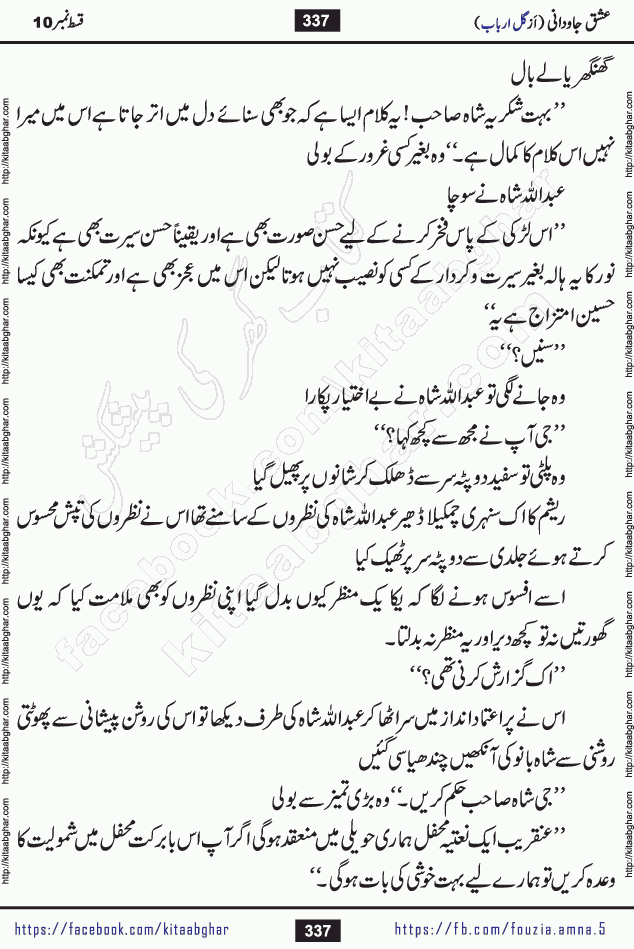 عشق جاودانی (از گل ارباب) 337 قسط نمبر 10
گھنگھریالے بال
’’بہت شکریہ شاہ صاحب! یہ کلام ایسا ہے کہ جو بھی سنائے دل میں اتر جاتا ہے اس میں میرا
نہیں اس کلام کا کمال ہے۔‘‘ وہ بغیر کسی غرور کے بولی
عبداللہ شاہ نے سوچا
’’اس لڑکی کے پاس فخر کرنے کے لیے حسن صورت بھی ہے اور یقیناً حسن سیرت بھی ہے کیونکہ
نور کا یہ ہالہ بغیر سیرت و کردار کے کسی کو نصیب نہیں ہوتا لیکن اس میں عجز بھی ہے اور تمکنت بھی کیسا
حسین امتزاج ہے یہ‘‘
’’سنیں؟‘‘
وہ جانے لگی تو عبداللہ شاہ نے بے اختیار پکارا
’’جی آپ نے مجھ سے کچھ کہا؟‘‘
وہ پلٹی تو سفید دوپٹہ سر سے ڈھلک کر شانوں پر پھیل گیا
ریشم کا اک سنہری چمکیلا ڈھیر عبداللہ شاہ کی نظروں کے سامنے تھا اس نے نظروں کی تپش محسوس
کرتے ہوئے جلدی سے دوپٹہ سر پر ٹھیک کیا
اسے افسوس ہونے لگا کہ یکایک منظر کیوں بدل گیا اپنی نظروں کو بھی ملامت کیا کہ یوں
گھورتیں نہ تو کچھ دیر اور یہ منظر نہ بدلتا۔
’’اک گزارش کرنی تھی؟‘‘
اس نے پر اعتماد انداز میں سر اٹھا کر عبداللہ شاہ کی طرف دیکھا تو اس کی روشن پیشانی سے پھوٹتی
روشنی سے شاہ بانو کی آنکھیں چندھیا سی گئیں
’’جی شاہ صاحب حکم کریں۔‘‘ وہ بڑی تمیز سے بولی
’’عنقریب ایک نعتیہ محفل ہماری حویلی میں منعقد ہو گی اگر آپ اس بابرکت محفل میں شمولیت کا
وعدہ کریں تو ہمارے لیے بہت خوشی کی بات ہو گی۔‘‘
https://facebook.com/kitaabghar 337 https://fb.com/fouzia.amna.5
http://kitaabghar.com
کتاب گھر کی پیشکش
facebook.com/kitaabghar
kitaabghar.com